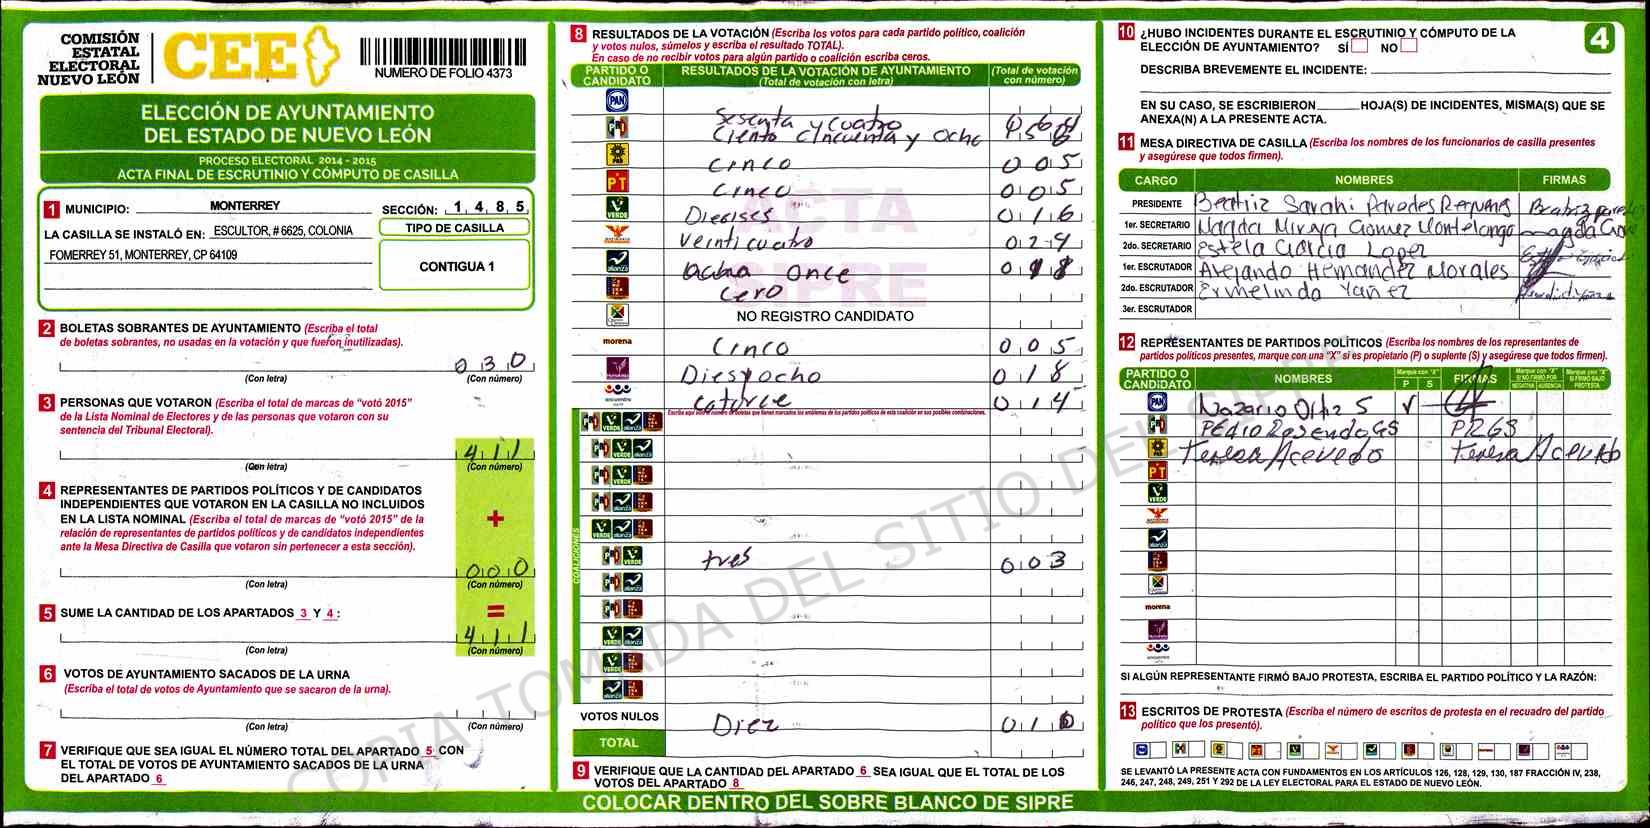 COMISIÓN
ESTATAL
ELECTORAL
NUEVO LEÓN
CEE
NUMERO DE FOLIO 4373
ELECCIÓN DE AYUNTAMIENTO
DEL ESTADO DE NUEVO LEÓN
PROCESO ELECTORAL 2014 - 2015
ACTA FINAL DE ESCRUTINIO Y CÓMPUTO DE CASILLA
1 MUNICIPIO: MONTERREY SECCIÓN: 1 4 8 5
LA CASILLA SE INSTALÓ EN: ESCULTOR, # 6625, COLONIA
FOMERREY 51, MONTERREY, CP 64109
TIPO DE CASILLA
CONTIGUA 1
2 BOLETAS SOBRANTES DE AYUNTAMIENTO (Escriba el total
de boletas sobrantes, no usadas en la votación y que fueron inutilizadas).
0 3 0
(Con letra) (Con número)
3 PERSONAS QUE VOTARON (Escriba el total de marcas de "votó 2015"
de la Lista Nominal de Electores y de las personas que votaron con su
sentencia del Tribunal Electoral).
4 1 1
(Con letra) (Con número)
4 REPRESENTANTES DE PARTIDOS POLÍTICOS Y DE CANDIDATOS
INDEPENDIENTES QUE VOTARON EN LA CASILLA NO INCLUIDOS
EN LA LISTA NOMINAL (Escriba el total de marcas de "votó 2015" de la
relación de representantes de partidos políticos y de candidatos independientes
ante la Mesa Directiva de Casilla que votaron sin pertenecer a esta sección).
+
0 0 0
(Con letra) (Con número)
5 SUME LA CANTIDAD DE LOS APARTADOS 3 Y 4 :
=
4 1 1
(Con letra) (Con número)
6 VOTOS DE AYUNTAMIENTO SACADOS DE LA URNA
(Escriba el total de votos de Ayuntamiento que se sacaron de la urna).
(Con letra) (Con número)
7 VERIFIQUE QUE SEA IGUAL EL NÚMERO TOTAL DEL APARTADO 5 CON
EL TOTAL DE VOTOS DE AYUNTAMIENTO SACADOS DE LA URNA
DEL APARTADO 6
8 RESULTADOS DE LA VOTACIÓN (Escriba los votos para cada partido político, coalición
y votos nulos, súmelos y escriba el resultado TOTAL).
En caso de no recibir votos para algún partido o coalición escriba ceros.
PARTIDO O CANDIDATO
RESULTADOS DE LA VOTACIÓN DE AYUNTAMIENTO
(Total de votación con letra)
(Total de votación con número)
PAN Sesenta y cuatro
PRI Ciento cincuenta y ocho
PRD cinco 0 0 5
PT cinco 0 0 5
VERDE Diecises 0 1 6
Veinticuatro 0 2 4
alianza once
cero
NO REGISTRO CANDIDATO
morena Cinco 0 0 5
Diesyocho 0 1 8
encuentro catorce 0 1 4
Escriba aquí número de boletas que tienen marcados los emblemas de los partidos políticos de esta coalición en sus posibles combinaciones.
COALICIONES
PRI VERDE tres 0 0 3
VOTOS NULOS Diez 0 1 0
TOTAL
9 VERIFIQUE QUE LA CANTIDAD DEL APARTADO 6 SEA IGUAL QUE EL TOTAL DE LOS
VOTOS DEL APARTADO 8
ACTA
SIPRE
COPIA TOMADA DEL SITIO DEL SIPRE
COLOCAR DENTRO DEL SOBRE BLANCO DE SIPRE
4
10 ¿HUBO INCIDENTES DURANTE EL ESCRUTINIO Y CÓMPUTO DE LA
ELECCIÓN DE AYUNTAMIENTO? SÍ NO
DESCRIBA BREVEMENTE EL INCIDENTE:
EN SU CASO, SE ESCRIBIERON HOJA(S) DE INCIDENTES, MISMA(S) QUE SE
ANEXA(N) A LA PRESENTE ACTA.
11 MESA DIRECTIVA DE CASILLA (Escriba los nombres de los funcionarios de casilla presentes
y asegúrese que todos firmen).
CARGO NOMBRES FIRMAS
PRESIDENTE Beatriz Sarahi Paredes
1er. SECRETARIO Magda Mireya Gomez Montelongo
2do. SECRETARIO Estela Garcia Lopez
1er. ESCRUTADOR Alejando Hernandez Morales
2do. ESCRUTADOR Ermelinda Yañez
3er. ESCRUTADOR
12 REPRESENTANTES DE PARTIDOS POLÍTICOS (Escriba los nombres de los representantes de
partidos políticos presentes, marque con una "X" si es propietario (P) o suplente (S) y asegúrese que todos firmen).
PARTIDO O CANDIDATO NOMBRES
Marque con "X"
P S
FIRMAS
Marque con "X"
SI NO FIRMÓ POR
NEGATIVA AUSENCIA
Marque con "X"
SI FIRMÓ BAJO
PROTESTA
PAN Nazario Ortiz S
PRI Pedro Rosendo GS PRGS
PRD Teresa Acevedo Teresa Acevedo
PT
VERDE
alianza
morena
encuentro
SI ALGÚN REPRESENTANTE FIRMÓ BAJO PROTESTA, ESCRIBA EL PARTIDO POLÍTICO Y LA RAZÓN:
13 ESCRITOS DE PROTESTA (Escriba el número de escritos de protesta en el recuadro del partido
político que los presentó).
SE LEVANTÓ LA PRESENTE ACTA CON FUNDAMENTOS EN LOS ARTÍCULOS 126, 128, 129, 130, 187 FRACCIÓN IV, 238,
246, 247, 248, 249, 251 Y 292 DE LA LEY ELECTORAL PARA EL ESTADO DE NUEVO LEÓN.